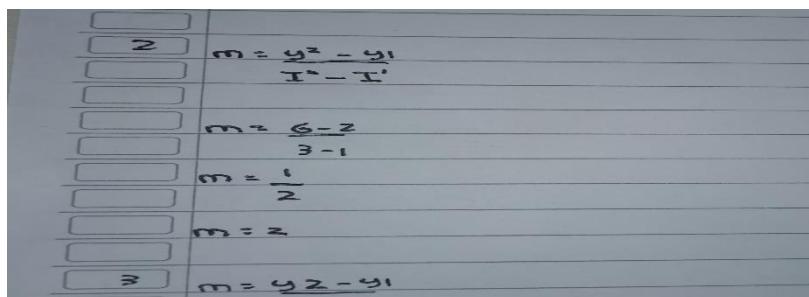 2 m = y² - y1
I² - I¹
m = 6-2
3-1
m = 1
2
m = 2
3 m = y2 - y1